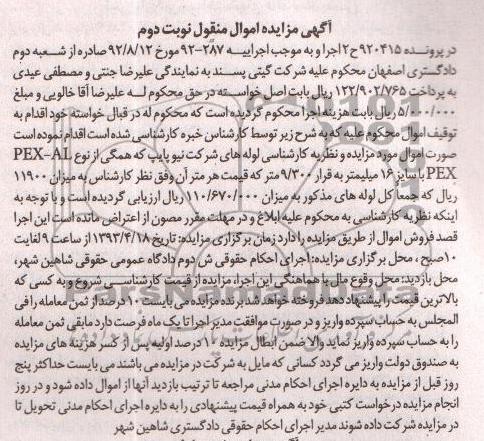 آگهی مزایده اموال منقول نوبت دوم
در پرونده ۹۲۰۴۱۵ ح۲ اجرا و به موجب اجراییه ۲۸۷-۹۲ مورخ ۹۲/۸/۱۲ صادره از شعبه دوم
دادگستری اصفهان محکوم علیه شرکت گیتی پسند به نمایندگی علیرضا جنتی و مصطفی عیدی
به پرداخت ۱۲۲/۹۰۲/۷۶۵ ریال بابت اصل خواسته در حق محکوم لـه علیرضا آقا خالویی و مبلغ
۵/۰۰۰/۰۰۰ ریال بابت هزینه اجرا محکوم گردیده است که محکوم له در قبال خواسته خود اقدام به
توقیف اموال محکوم علیه که به شرح زیر توسط کارشناس خبره کارشناسی شده است اقدام نموده است
صورت اموال مورد مزایده و نظریه کارشناسی لوله های شرکت نیو پایپ که همگی از نوع PEX-AL
PEX با سایز ۱۶ میلیمتر به قرار ۹/۳۰۰ متر که قیمت هر متر آن وفق نظر کارشناس به میزان ۱۱۹۰۰
ریال که جمعاً کل لوله های مذکور به میزان ۱۱۰/۶۷۰/۰۰۰ ریال ارزیابی گردیده است و با توجه به
اینکه نظریه کارشناسی به محکوم علیه ابلاغ و در مهلت مقرر مصون از اعتراض مانده است این اجرا
قصد فروش اموال از طریق مزایده را دارد زمان برگزاری مزایده: تاریخ ۱۳۹۳/۴/۱۸ از ساعت ۹ لغایت
۱۰ صبح ، محل برگزاری مزایده: اجرای احکام حقوقی ش دوم دادگاه عمومی حقوقی شاهین شهر،
محل بازدید: محل وقوع مال با هماهنگی این اجرا، مزایده از قیمت کارشناسی شروع و به کسی که
بالاترین قیمت را پیشنهاد دهد فروخته خواهد شد برنده مزایده می بایست ۱۰ درصد از ثمن معامله را فی
المجلس به حساب سپرده واریز و در صورت موافقت مدیر اجرا تا یک ماه فرصت دارد مابقی ثمن معامله
را به حساب سپرده واریز نماید والا ضمن ابطال مزایده ۱۰ درصد اولیه پس از کسر هزینه های مزایده
به صندوق دولت واریز می گردد کسانی که مایل به شرکت در مزایده می باشند می بایست حداکثر پنج
روز قبل از مزایده به دایره اجرای احکام مدنی مراجعه تا ترتیب بازدید آنها از اموال داده شود و در روز
انجام مزایده درخواست کتبی خود به همراه قیمت پیشنهادی را به دایره اجرای احکام مدنی تحویل تا
در مزایده شرکت داده شوند مدیر اجرای احکام حقوقی دادگستری شاهین شهر